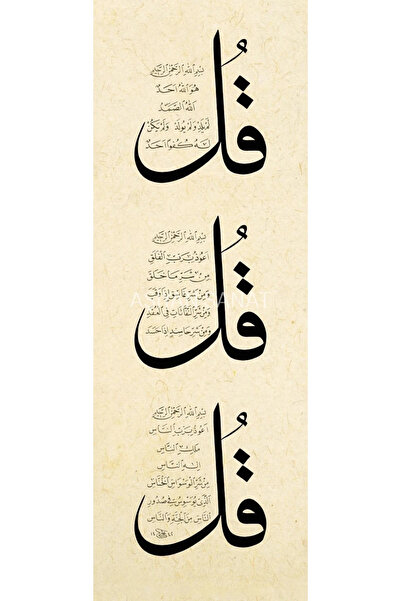 قُلْ
بِسْمِ اللهِ الرَّحْمٰنِ الرَّحِيمِ
هُوَ اللهُ اَحَدٌ
اَللهُ الصَّمَدُ
لَمْ يَلِدْ وَلَمْ يُولَدْ وَلَمْ يَكُنْ
لَهُ كُفُوًا اَحَدٌ
قُلْ
بِسْمِ اللهِ الرَّحْمٰنِ الرَّحِيمِ
اَعُوذُ بِرَبِّ الْفَلَقِ
مِنْ شَرِّ مَا خَلَقَ
وَمِنْ شَرِّ غَاسِقٍ اِذَا وَقَبَ
وَمِنْ شَرِّ النَّفَّاثَاتِ فِي الْعُقَدِ
وَمِنْ شَرِّ حَاسِدٍ اِذَا حَسَدَ
قُلْ
بِسْمِ اللهِ الرَّحْمٰنِ الرَّحِيمِ
اَعُوذُ بِرَبِّ النَّاسِ
مَلِكِ النَّاسِ
اِلٰهِ النَّاسِ
مِنْ شَرِّ الْوَسْوَاسِ الْخَنَّاسِ
اَلَّذِي يُوَسْوِسُ فِي صُدُورِ
النَّاسِ مِنَ الْجِنَّةِ وَالنَّاسِ